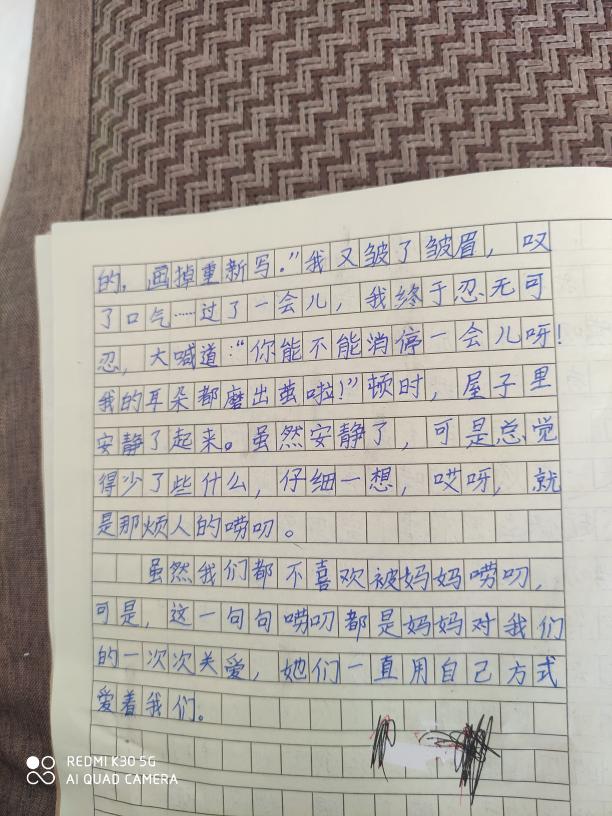 的，画掉重新写。”我又皱了皱眉，叹
了口气……过了一会儿，我终于忍无可
忍，大喊道：“你能不能消停一会儿呀！
我的耳朵都磨出茧啦！”顿时，屋子里
安静了起来。虽然安静了，可是总觉
得少了些什么，仔细一想，哎呀，就
是那烦人的唠叨。
虽然我们都不喜欢被妈妈唠叨，
可是，这一句句唠叨都是妈妈对我们
的一次次关爱，她们一直用自己方式
爱着我们。
REDMI K30 5G
AI QUAD CAMERA